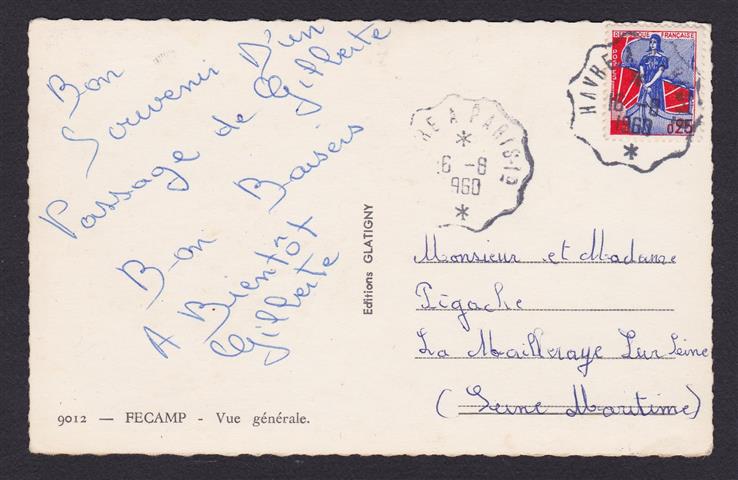 Bon
Souvenir D'un
Passage de Gilberte
Bon Baisers
A Bientôt
Gilberte
9012 — FECAMP - Vue générale.
Editions GLATIGNY
RÉPUBLIQUE FRANÇAISE
POSTES
0,25
HAVRE A
16 -8
1960
*
RE A PARIS-1°
*
6 -8
960
*
Monsieur et Madame
Pigache
La Mailleraye Sur Seine
(Seine Maritime)